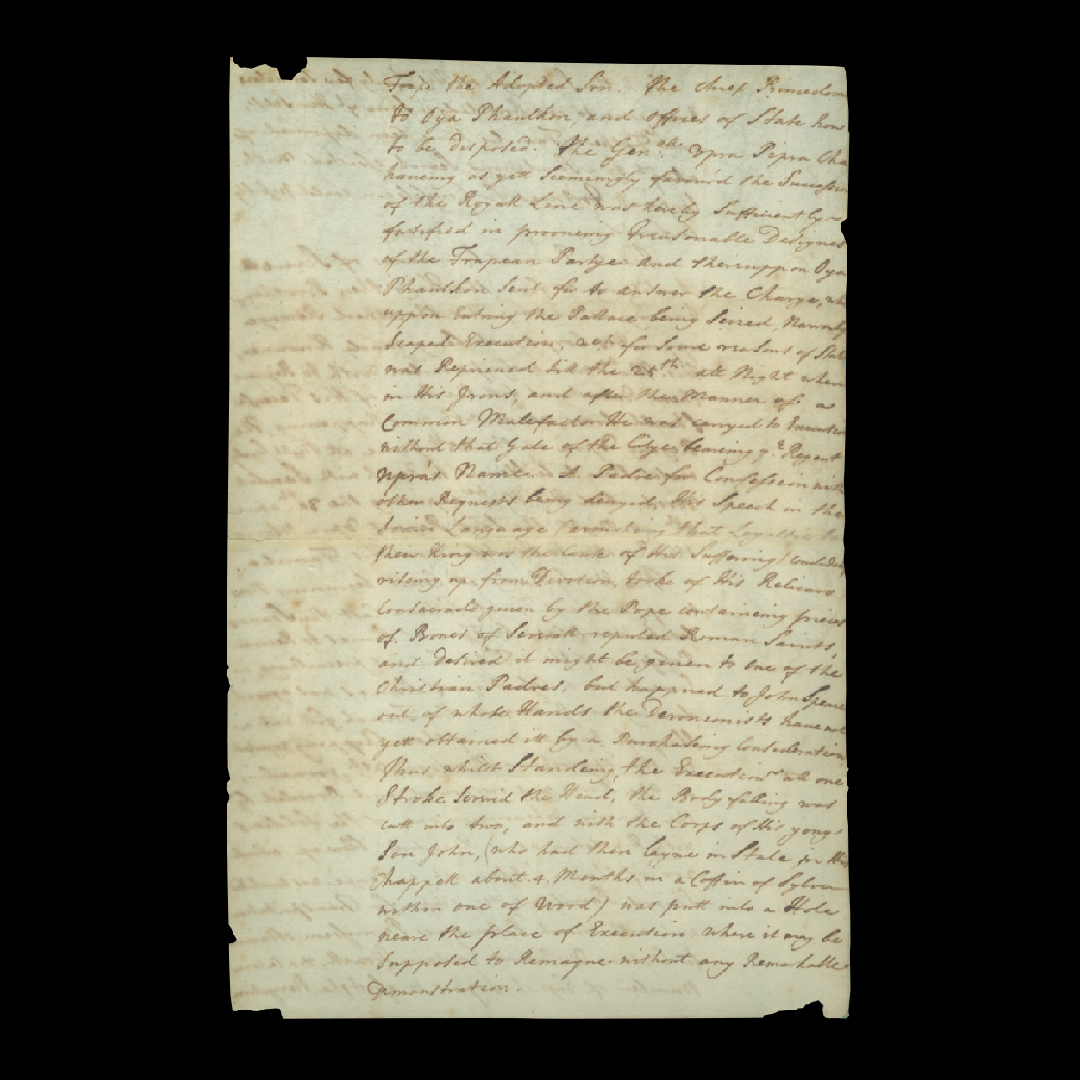 Trape the Adopted Son. The chief Promodon
to Oya Phaulkon, and offices of State how
to be disposed. The Gen:all Upra Pipra Cha
haueing as yett Seemingly favour'd the Succession
of the Royall Line was hereby Sufficiently
fortified in prooueing Treasonable Designes
of the Trapean Partye and thereuppon Oya
Phaulkon Sent for to answer the Charge, wh
uppon Entring the Pallace being Seized, Narrowly
Scaped Execution, but for Some reasons of State
was Reprieued till the 25th. att Night when
in His Irons, and after the Manner of a
Common Malefactor He was carryed to Executi
without that Gate of the Citye bearing ye Regent
Upra's Name. A Padre for Confession with
other Requests being denyed, His Speech in the
Siam Language Premising that Loyaltie to
their King was the Cause of His Suffering (concluded)
riseing up from Devotion, tooke of His Relicaro
Consacrado giuen by the Pope containeing peices
of Bones of Seuerall reputed Roman Saints,
and desired it might be giuen to one of the
Christian Padres, but happned to John Spence
out of whose Hands the Devotionists haue not
yett obtained itt by a Purchasing Consideration
Thus whilst Standing, the Executionr att one
Stroke Serued the Head, the Body falling was
cutt into two, and with the Corps of His yong
Son John, (who had then layne in State in the
Chappell about 4 Months in a Coffin of Sylver
within one of Wood) was putt into a Hole
neare the place of Execution where it may be
Supposed to Remayne without any Remarkable
Demonstration.